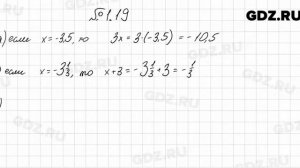 GDZ.RU
№1.19
) если x=-3,5, то 3x=3·(-3,5)=-10,5
) если x=-3 1/3, то x+3=-3 1/3+3=-1/3